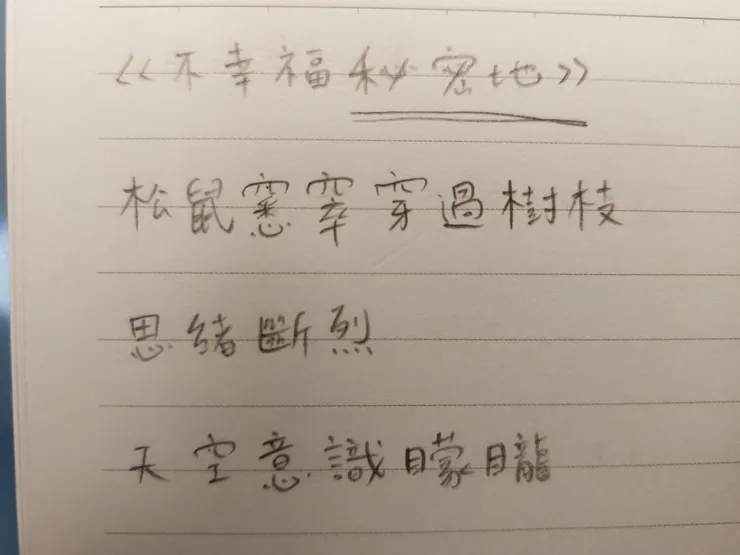 《不幸福秘密地》
松鼠窸窣穿過樹枝
思緒斷烈
天空意識矇矓